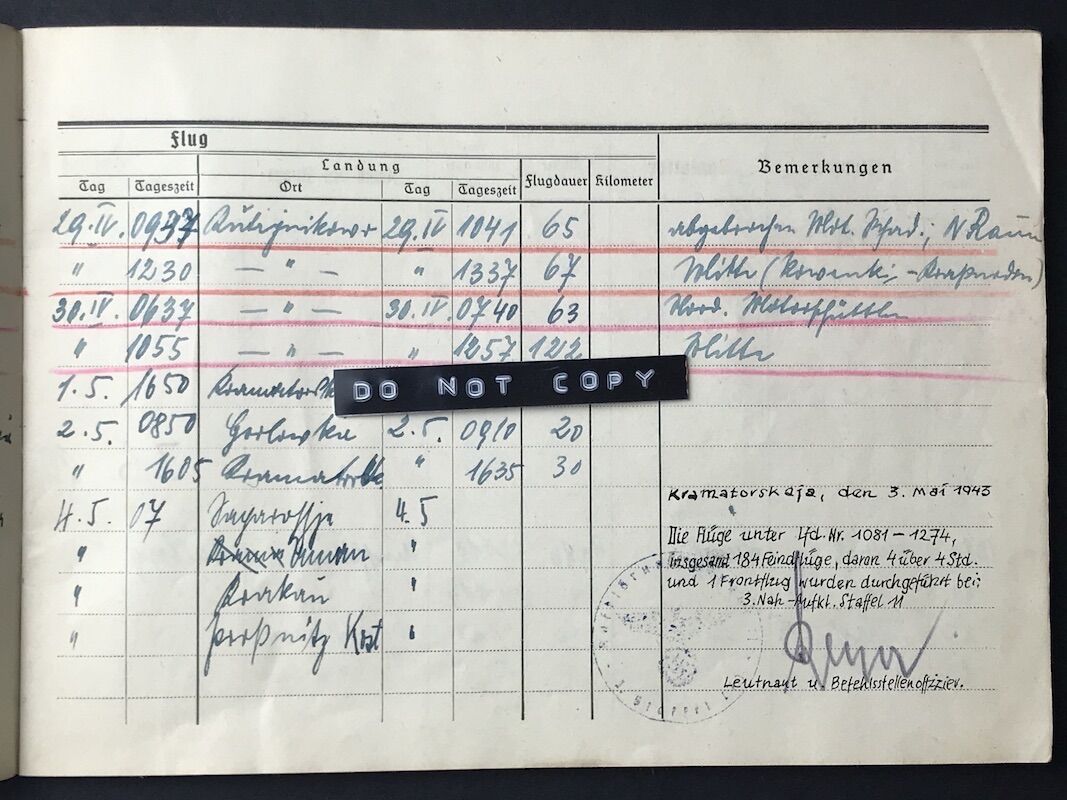 Flug
Landung
Bemerkungen
Tag Tageszeit Ort Tag Tageszeit Flugdauer Kilometer
29.IV. 0937 29.IV 1041 65 abgebrochen Mot. Schad.; N Raum
" 1230 — " — " 1337 67 Mitte (
30.IV. 0637 — " — 30.IV. 0740 63 Nord.
" 1055 — " — " 1257 122 Mitte
1.5. 1650
DO NOT COPY
2.5. 0850 Gorlowka 2.5. 0910 20
" 1605 " 1635 30
Kramatorskaja, den 3. Mai 1943
4.5. 07 4.5
Die Flüge unter Lfd. Nr. 1081 – 1274,
" "
insgesamt 184 Feindflüge, daran 4 über 4 Std.
und 1 Frontflug wurden durchgeführt bei:
" Krakau "
3. Nah-Aufkl. Staffel 11
" Proßnitz "
Leutnant u. Befehlsstellenoffizier.